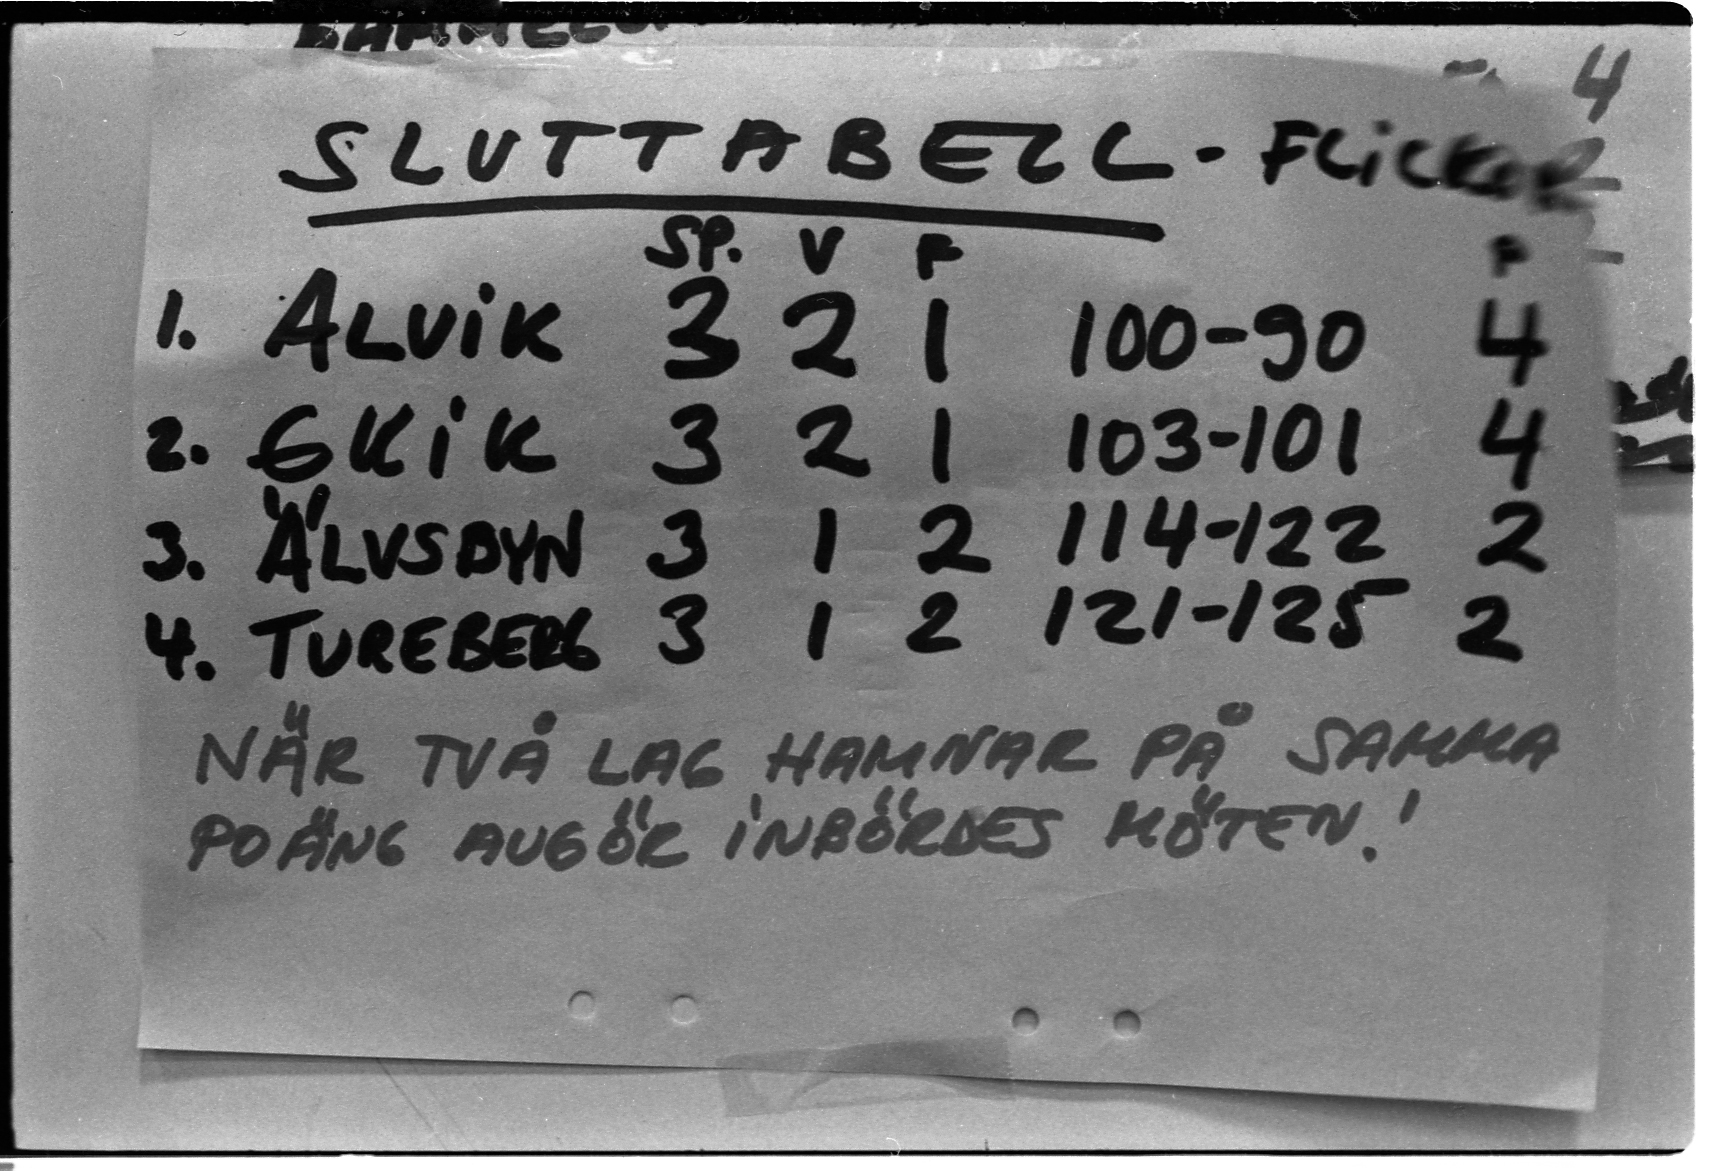 4
SLUTTABELL - FLICKOR
SP. V F P
1. ALVIK 3 2 1 100-90 4
2. GKIK 3 2 1 103-101 4
3. ÄLVSBYN 3 1 2 114-122 2
4. TUREBERG 3 1 2 121-125 2
NÄR TVÅ LAG HAMNAR PÅ SAMMA
POÄNG AVGÖR INBÖRDES MÖTEN!